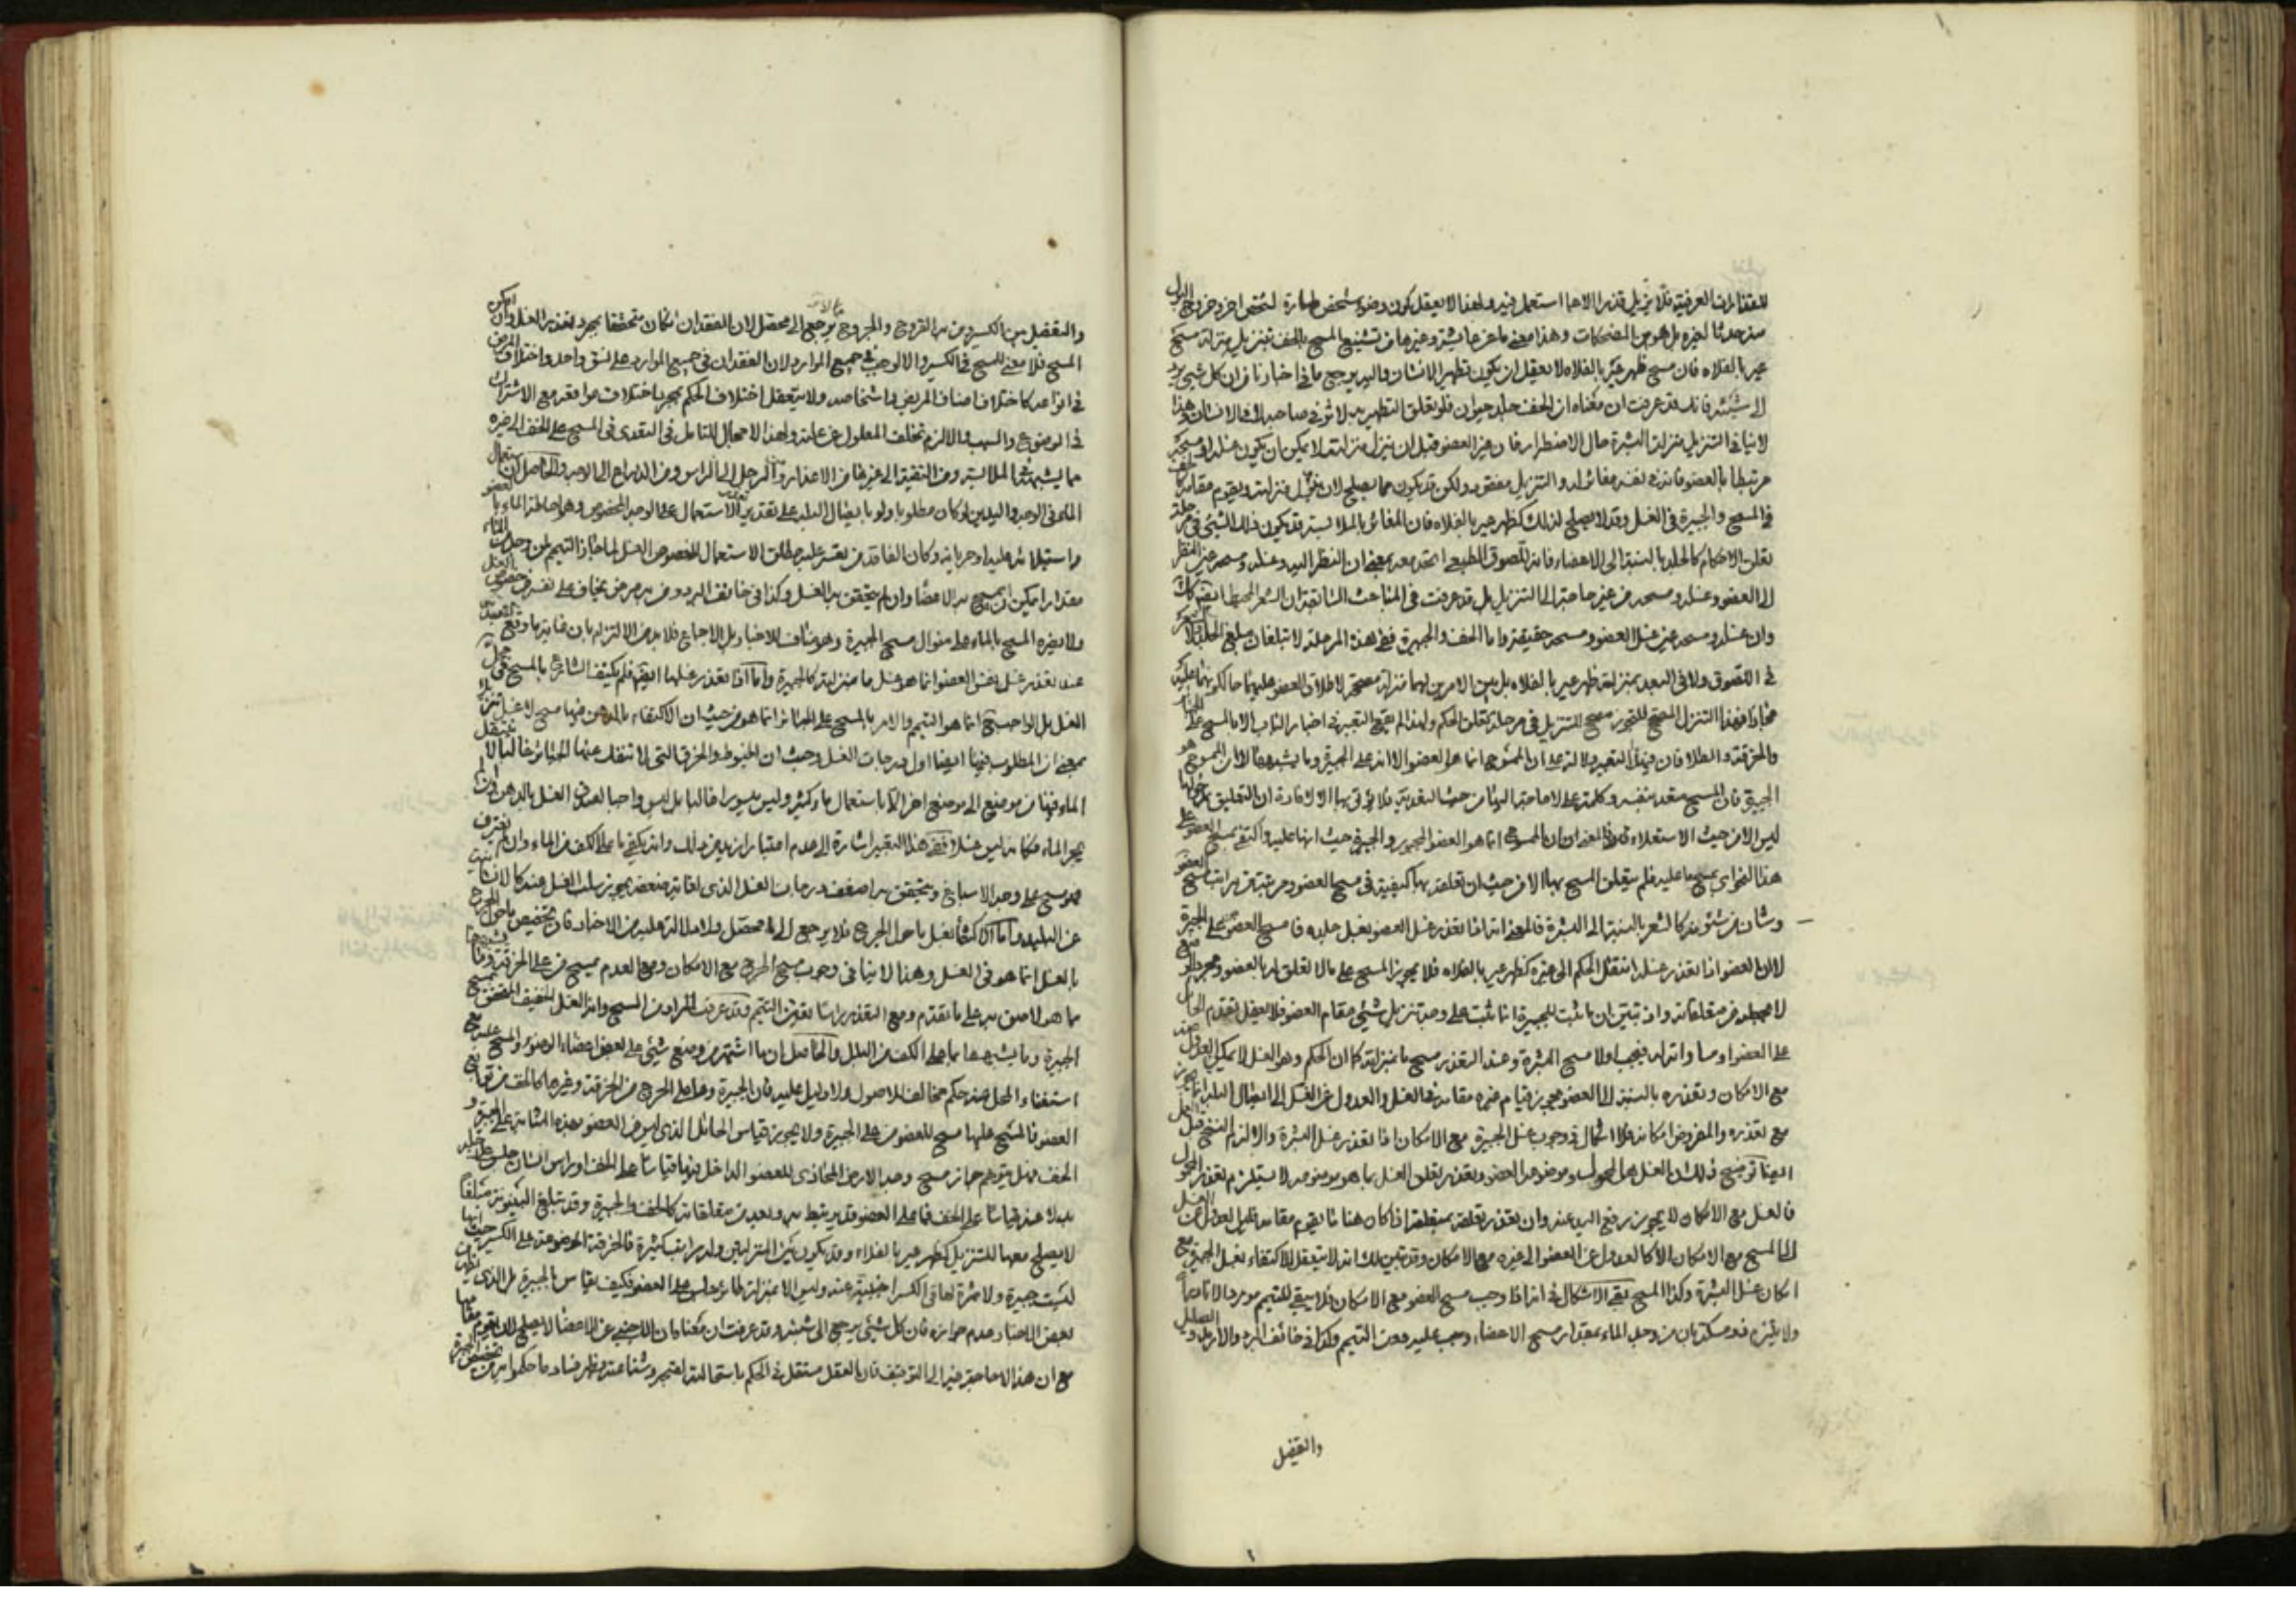 للقذارات العرفية فلا يزيل قذرا الا ما استعمل فيه ولهذا لا يعقل كون وضوء شخص طهارة لشخص اخر وخروج البول
من حدثا لغيره بل هو من المضحكات وهذا معنى ما عن عايشة وغيرها من تشنيع المسح بالخف تنزيل منزلة مسح
عير بالفلاة فان مسح ظهر عير بالفلاة لا يعقل ان يكون تطهيرا لانسان واليه يرجع ما في اخبارنا من ان كل شيء يرد
الى شيئه فانك قد عرفت ان معناه ان الخف جلد حيوان فلو تعلق التطهير به لاثر في صاحبه لا في الانسان وهذا
لا ينافي التنزيل منزلة البشرة حال الاضطرار فان غير العضو قبل ان ينزل منزلته لا يمكن ان يكون غسله او مسحه
مرتبطا بالعضو فانه في نفسه مغائر له والتنزيل مفقود ولكن قد يكون مما يصلح لان ينزل منزلته ويقوم مقامه كالخف
في المسح والجبيرة في الغسل وقد لا يصلح لذلك كظهر عير بالفلاة فان المغائر بالملابسة قد يكون فذلك الشيء في مرحلة
تعلق الاحكام كالجلد بالنسبة الى الاعضاء فانه للصوق الطبيعي اتحد معه بمعنى ان النظر اليه وغسله ومسحه عين النظر
الى العضو وغسله ومسحه من غير حاجة الى التنزيل بل قد عرفت في المباحث السابقة ان الشعر المحيط ايضا كذلك
وان غسله ومسحه عين غسل العضو ومسحه حقيقة واما الخف والجبيرة ففي هذه المرحلة لا تبلغان مبلغ الجلد والشعر
في اللصوق ولا في البعد بمنزلة ظهر عير بالفلاة بل بين الامرين لهما منزلة مصححة لاطلاق العضو عليهما حال كونهما عليه
مجازا فهذا التنزل المصحح للتجوز مصحح للتنزيل في مرحلة تعلق الحكم ولهذا لم يقع التعبير في اخبار الباب الا بالمسح على الجبائر
والخرقة والطلا فان فيه التعبير دلالة على ان الممسوح انما هو العضو الا انه على الجبيرة وما يشبهها لا ان الممسوح هو
الجبيرة فان المسح متعد بنفسه وكلمة على لا حاجة اليها من حيث التعدية فلا يؤتى بها الا لافادة ان التعليق بمدخولها
ليس الا من حيث الاستعلاء فالمعنى ان الممسوح انما هو العضو المجبور والجبيرة حيث انها عليه واكتفى بمسح العضو على
هذا النحو اي بمسح ما عليه فلم يتعلق المسح بها الا من حيث ان تعلقه بها كيفية في مسح العضو ومرتبة من مراتب مسح العضو
وشان من شئونه كالشعر بالنسبة الى البشرة فالمعنى انه اذا تعذر غسل العضو يغسل جلده فامسح العضو على الجبيرة
لان العضو اذا تعذر غسله انتقل الحكم الى غيره كظهر عير بالفلاة فلا يجوز المسح على ما لا تعلق له بالعضو
لا يجعله من متعلقاته واذ تبين ان ما ثبت للجبيرة انما ثبت على وجه تنزيل شيء مقام العضو فلا يعقل تقدم الحال
على العضو او مساواته له فيجب اولا مسح البشرة وعند التعذر مسح ما بمنزلته كما ان الحكم وهو الغسل لا يمكن العدول عنه
مع الامكان وتعذره بالنسبة الى العضو مجوز قيام غيره مقامه في الغسل والعدول عن الغسل الى ايصال البلة انما يجوز
مع تعذره والمفروض امكانه فلا اشكال في وجوب غسل الجبيرة مع الامكان اذا تعذر غسل البشرة والا لزم النسخ قبل
ايضا توضيح ذلك ان الغسل هو المحمول وموضوعه العضو وتعذر تعلق الغسل بما هو موضوعه لا يستلزم تعذر المحمول
فالغسل مع الامكان لا يجوز رفع اليد عنه وان تعذر تعلقه بمتعلقه اذا كان هنا ما يقوم مقامه فليس العدول عن الغسل
الى المسح مع الامكان الا كالعدول عن العضو الى غيره مع الامكان وقد تبين لك انه لا يتعقل الاكتفاء بغسل الجبيرة مع
امكان غسل البشرة وكذا المسح بقي الاشكال في انه اذا وجب مسح العضو مع الامكان فلا يبقى للتيمم مورد الا نادرا
ولا يلتزم فقيه مسكة بان من وجد الماء بمقدار مسح الاعضاء وجب عليه دون التيمم وكذا في خائف البرد والارمد
والتفصيل
والتفصيل بين الكسير ومن به القروح والجروح لا يرجع الى محصل لان الفقدان ان كان متحققا بمجرد تعذر الغسل وان امكن
المسح فلا معنى للمسح في الكسير والا لوجب في جميع الموارد لان الفقدان في جميع الموارد على نسق واحد واختلاف المرض
في انواعه كاختلاف اصناف المريض واشخاصه ولا يتعقل اختلاف الحكم بمجرد اختلاف موانعه مع الاشتراك
في الموضوع والسبب والا لزم تخلف المعلول عن علته ولهذا لا مجال للتامل في التعدي في المسح على الخف الى غيره
مما يشبهه في الملابسة ومن التقية الى غيرها من الاعذار ومن الرجل الى الراس ومن الذراع الى الوجه والحاصل ان استعمال
الماء في الوجه واليدين لو كان مطلوبا ولو بايصال البلة على تقدير تعذر الاستعمال على الوجه المخصوص وهو احاطة الماء بالعضو
واستيلائه عليه او جريانه وكان الفاقد من تعذر عليه مطلق الاستعمال لا خصوص الغسل لما جاز التيمم لمن وجد من الماء
مقدارا يمكن ان يمسح به الاعضاء وان لم يتحقق به الغسل وكذا في خائف البرد ومن به مرض يخاف على نفسه من خصوص الغسل
ولا يضره المسح بالماء على منوال مسح الجبيرة وهو مناف للاخبار بل الاجماع فلا بد من الالتزام بان غاية ما وقع التعبد به
عند تعذر غسل نفس العضو انما هو غسل ما منزلته كالجبيرة واما اذا تعذر غسلها ايضا فلم يكتف الشارع بالمسح في محل
الغسل بل الواجب انما هو التيمم والامر بالمسح على الجبائر انما هو من حيث ان الاكتفاء بالدهن فيها مسح لا غسل
بمعنى ان المطلوب فيها ايضا اول درجات الغسل وحيث ان الخيوط والخرق التي لا تنفك عنها الجبائر غالبا لا ينتقل
الماء فيها من موضع الى موضع اخر الا باستعمال ماء كثير وليس ميسورا غالبا بل ليس واجبا لصدق الغسل بالدهن وان لم
يجر الماء فكانه ليس غسلا ففي هذا التعبير اشارة الى عدم اعتبار ازيد من ذلك وانه يكتفى بما على الكف من الماء وان لم يغترف
فهو مسح على وجه الاسباغ ويتحقق به اضعف درجات الغسل الذي لغاية ضعفه يجوز سلب الغسل عنه كما لا يثبت
عن البليد واما الاكتفاء بغسل ما حول الجرح فلا يرجع الى محصل ولا دلالة عليه من الاخبار فان تخصيص ما حول الجرح
بالغسل انما هو في الغسل وهذا لا ينافي وجوب مسح الجرح مع الامكان ومع العدم يمسح على الخرقة وما يشبهها
مما هو لاصق به على ما تقدم ومع التعذر راسا تعين التيمم وقد عرفت المراد من المسح وانه الغسل الخفيف المتحقق بمسح
الجبيرة وما يشبهها بما على الكف من البلل والحاصل ان ما اشتهر من وضع شيء على بعض اعضاء الوضوء والمسح عليه مع
استغناء المحل عنه حكم مخالف للاصول ولا دليل عليه فان الجبيرة وما على الجرح من الخرقة وغيرها كالخف من توابع
العضو فالمسح عليها مسح للعضو على الجبيرة ولا يجوز قياس الحائل الذي ليس من العضو بهذه المثابة على الجبيرة و
الخف فهل يتوهم جواز مسح وجه الارض المحاذي للعضو الداخل فيها قياسا على الخف او راس انسان جلس على جلد
بدلا عنه قياسا على الخف فما على العضو قد يرتبط به ويعد من متعلقاته كالخف والجبيرة وقد تبلغ البينونة مبلغا
لا يصلح معها للتنزيل كظهر عير بالفلاة وقد يكون بين المنزلتين وله مراتب كثيرة فالخرقة الموضوعة على الكسر حيث انها
ليست جبيرة ولا ثمرة لها في الكسر اجنبية عنه وليس الا بمنزلة طائر جلس على العضو فكيف يقاس بالجبيرة مع الذي يظهر من
بعض الاخبار عدم جوازه فان كل شيء يرجع الى شيئه وقد عرفت ان معناه ان الاجنبي عن الاعضاء لا يصلح لان يقوم مقامها
مع ان هذا لا حاجة فيه الى التوقيف فان العقل مستقل في الحكم باستحالته لقبحه وشناعته وظهر فساد ما حكموا به من تخصيص الجبيرة